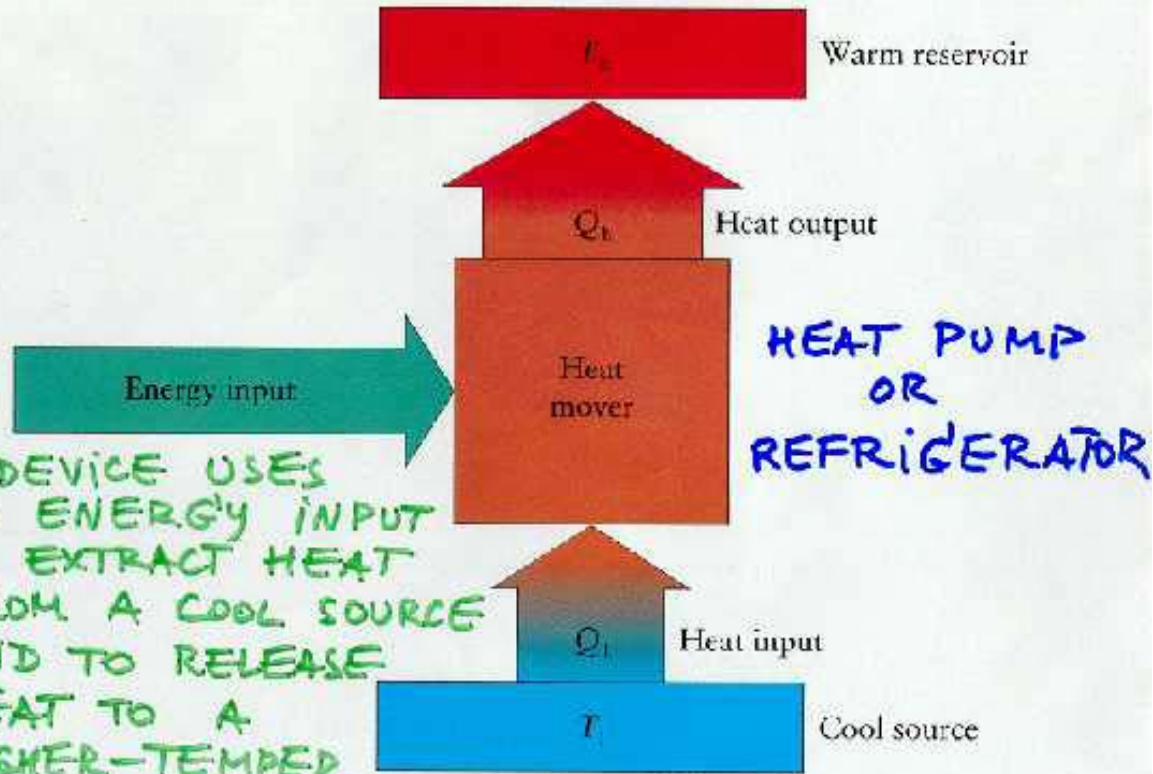 Warm reservoir
Qh
Heat output
Energy input
Heat
mover
HEAT PUMP
OR
REFRiGERATOR
DEVICE USES
ENERGY iNPUT
EXTRACT HEAT
A COOL SOURCE
TO RELEASE
TO A
Heat input
Cool source